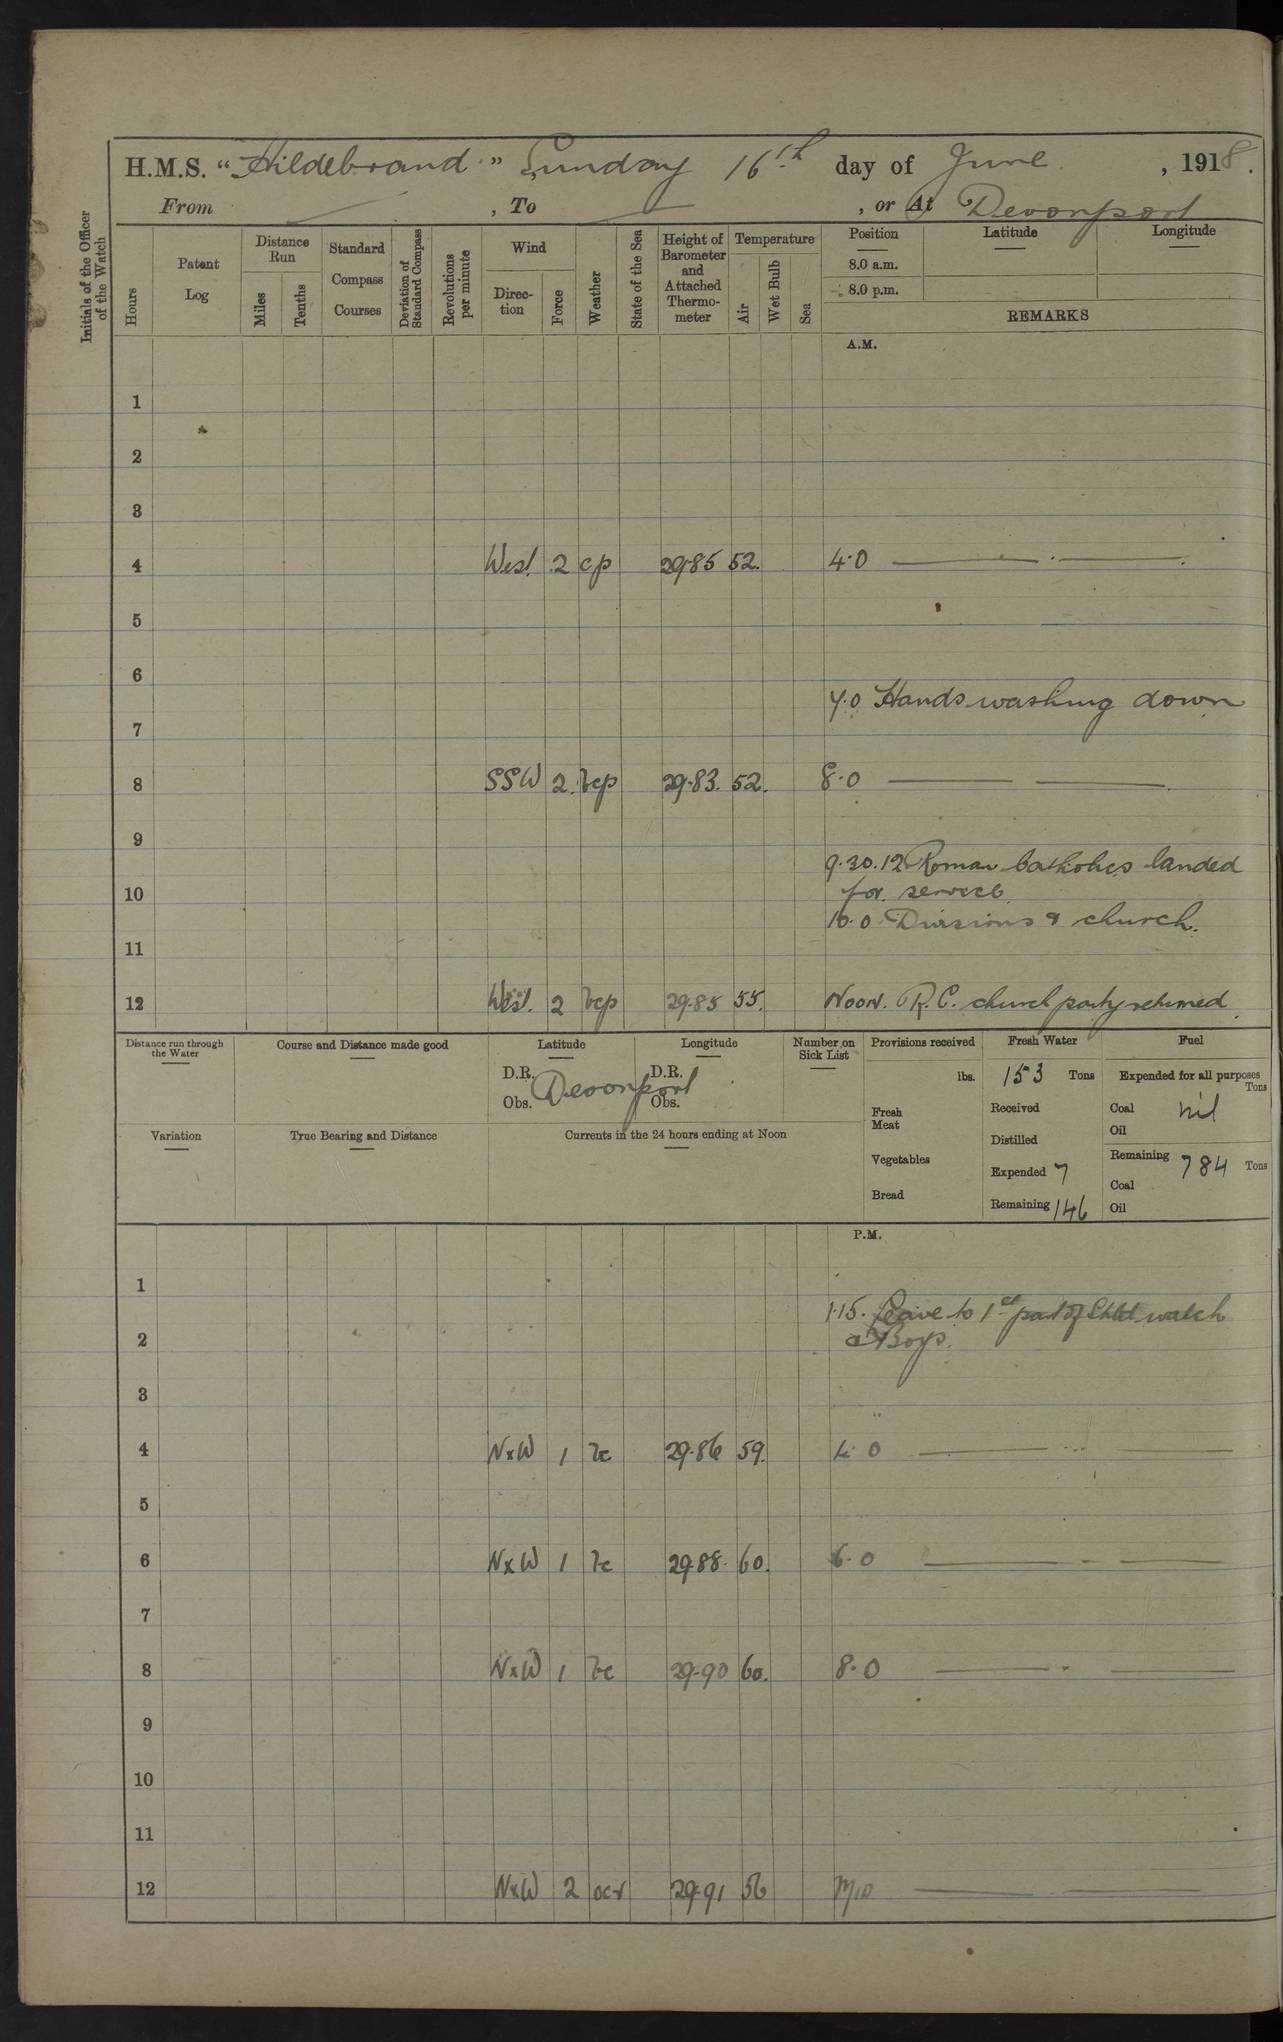 H.M.S. "Hildebrand" Sunday 16th day of June, 1918.
From , To , or At Devonport
Initials of the Officer of the Watch
Hours
Patent Log
Distance Run
Miles
Tenths
Standard Compass Courses
Deviation of Standard Compass
Revolutions per minute
Wind
Direction
Force
Weather
State of the Sea
Height of Barometer and Attached Thermometer
Temperature
Air
Wet Bulb
Sea
Position Latitude Longitude
8.0 a.m.
8.0 p.m.
REMARKS
A.M.
1
2
3
4 West. 2 cp 29.85 52. 4.0
5
6
7.0 Hands washing down
7
8 SSW 2. bcp 29.83. 52. 8.0
9
9.30. 12 Roman Catholics landed
10 for service.
10.0 Divisions & church.
11
12 West. 2 bcp 29.85 55. Noon. R.C. church party returned.
Distance run through the Water
Course and Distance made good
Latitude
Longitude
D.R. D.R.
Devonport
Obs. Obs.
Number on Sick List
Variation
True Bearing and Distance
Currents in the 24 hours ending at Noon
Provisions received
lbs.
Fresh Meat
Vegetables
Bread
Fresh Water
153 Tons
Received
Distilled
Expended 7
Remaining 146
Fuel
Expended for all purposes
Tons
Coal nil
Oil
Remaining 784 Tons
Coal
Oil
P.M.
1
1.15. Leave to 1st part of Stbd watch
2 & Boys.
3
4 NxW 1 bc 29.86 59. 4.0
5
6 NxW 1 bc 29.88. 60. 6.0
7
8 NxW 1 bc 29.90 60. 8.0
9
10
11
12 NxW 2 ocr 29.91 56 Mid